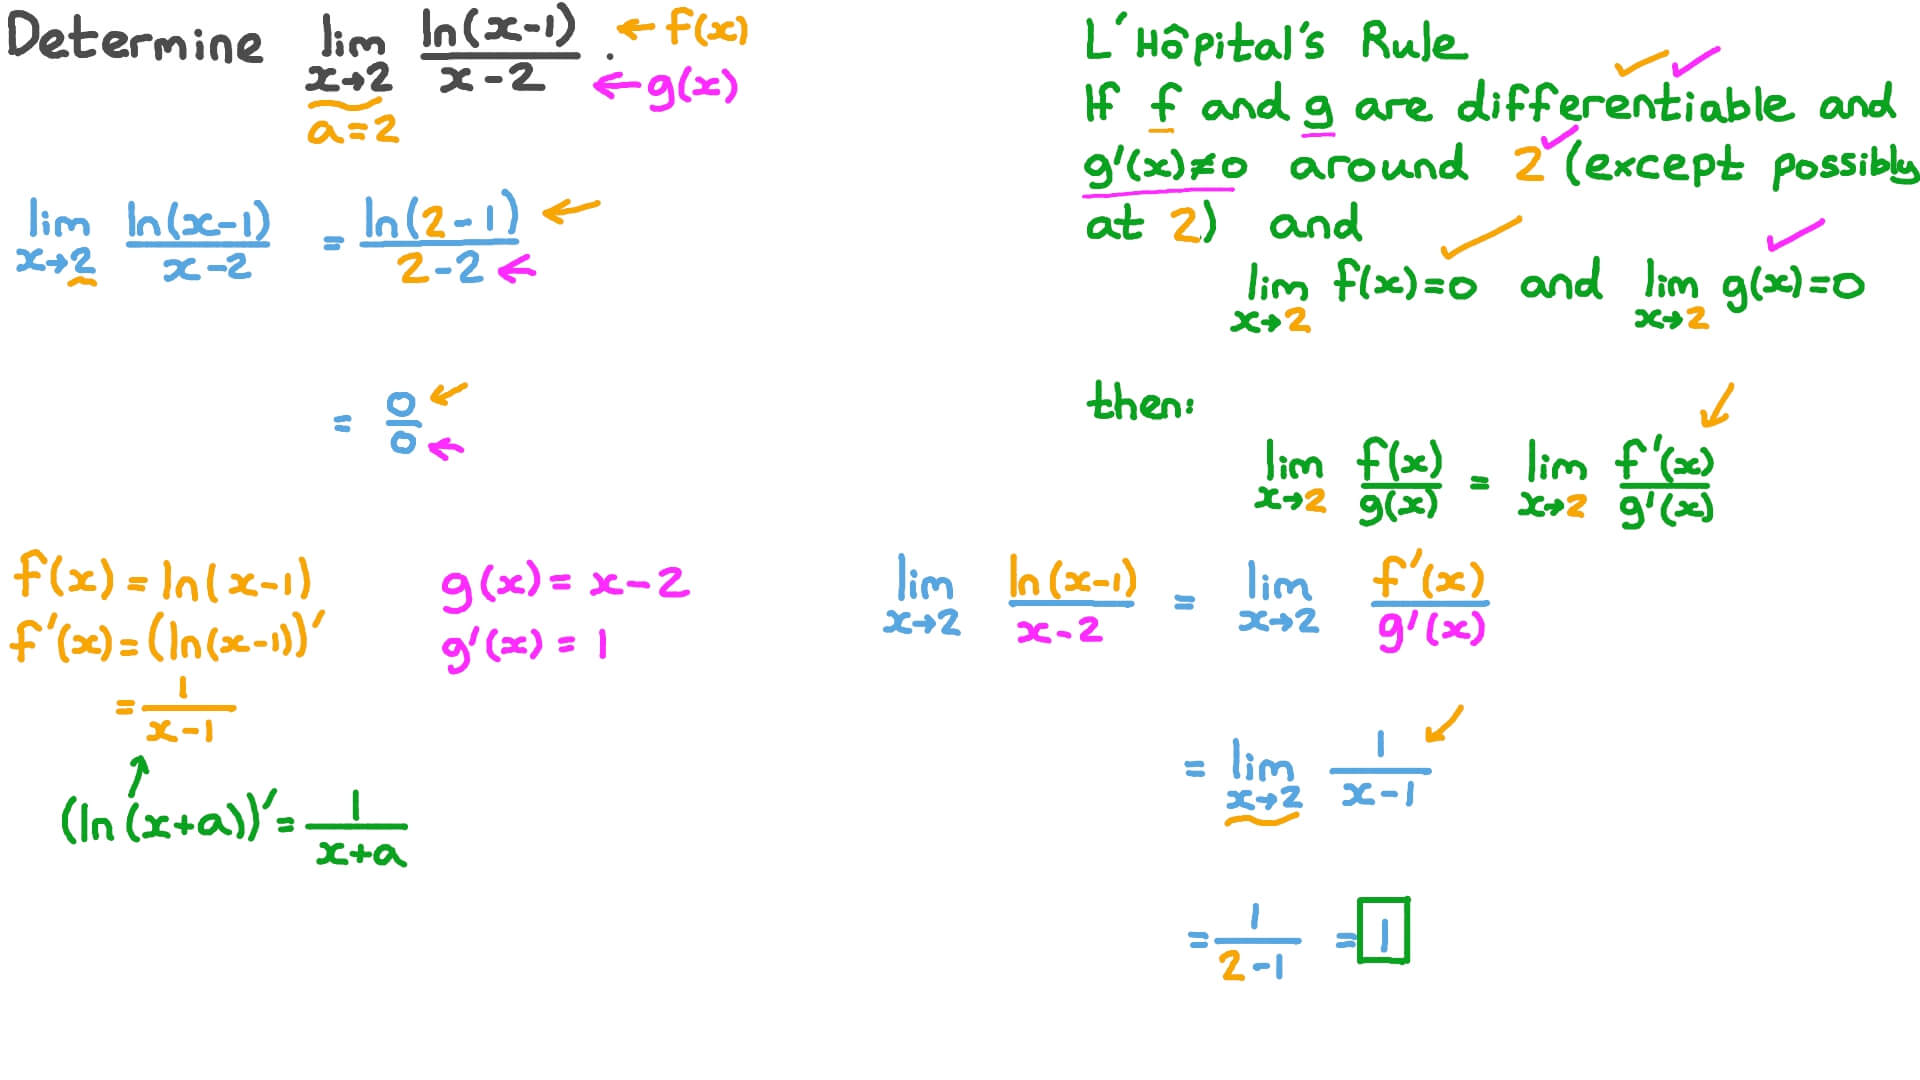 Determine lim x→2 ln(x-1)/(x-2) . ← f(x)
← g(x)
a=2
lim x→2 ln(x-1)/(x-2) = ln(2-1)/(2-2)
= 0/0
f(x) = ln(x-1)
f'(x) = (ln(x-1))'
= 1/(x-1)
(ln(x+a))' = 1/(x+a)
g(x) = x-2
g'(x) = 1
L'Hôpital's Rule
If f and g are differentiable and
g'(x)≠0 around 2 (except possibly
at 2) and
lim x→2 f(x)=0 and lim x→2 g(x)=0
then:
lim x→2 f(x)/g(x) = lim x→2 f'(x)/g'(x)
lim x→2 ln(x-1)/(x-2) = lim x→2 f'(x)/g'(x)
= lim x→2 1/(x-1)
= 1/(2-1) = 1